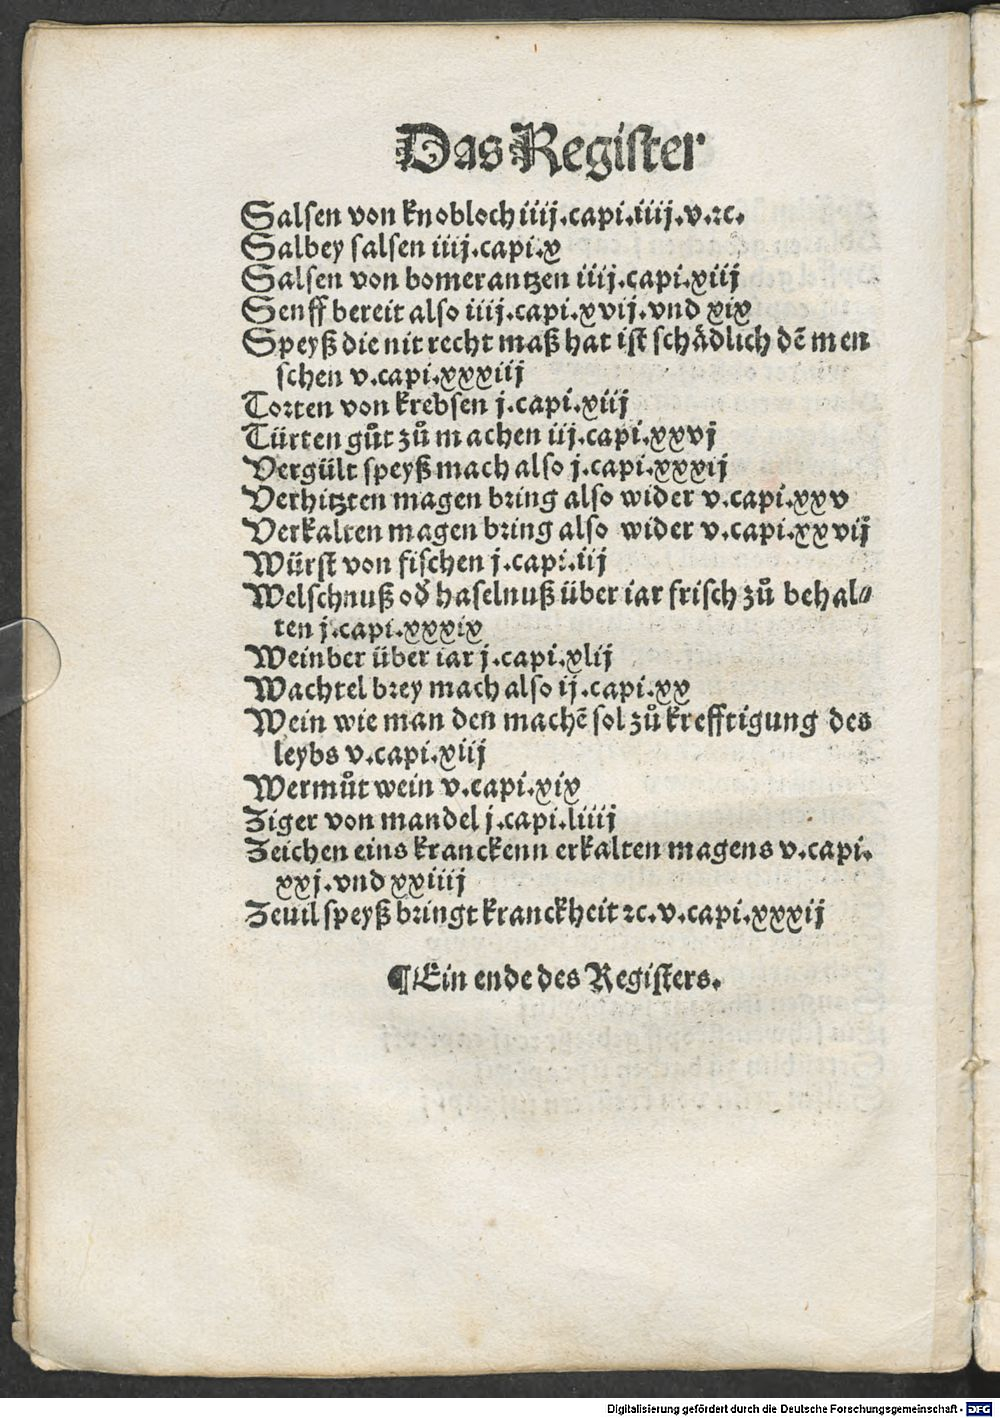 Das Register
Salsen von knobloch iiij.capi.iiij.v.ꝛc.
Salbey salsen iiij.capi.x
Salsen von bomerantzen iiij.capi.xiij
Senff bereit also iiij.capi.xvij.vnd xix
Speyß die nit recht maß hat ist schädlich dē men
schen v.capi.xxxiij
Torten von krebsen j.capi.xiij
Türten gůt zů machen iij.capi.xxvj
Vergült speyß mach also j.capi.xxxij
Verhitzten magen bring also wider v.capi.xxv
Verkalten magen bring also wider v.capi.xxvij
Würst von fischen j.capi.iij
Welschnuß oď haselnuß über iar frisch zů behal⸗
ten j.capi.xxxix
Weinber über iar j.capi.xlij
Wachtel brey mach also ij.capi.xx
Wein wie man den machē sol zů krefftigung des
leybs v.capi.xiij
Wermůt wein v.capi.xix
Ziger von mandel j.capi.liiij
Zeichen eins kranckenn erkalten magens v.capi.
xxj.vnd xxiiij
Zeuil speyß bringt kranckheit ꝛc.v.capi.xxxij
¶Ein ende des Registers.
Digitalisierung gefördert durch die Deutsche Forschungsgemeinschaft - DFG